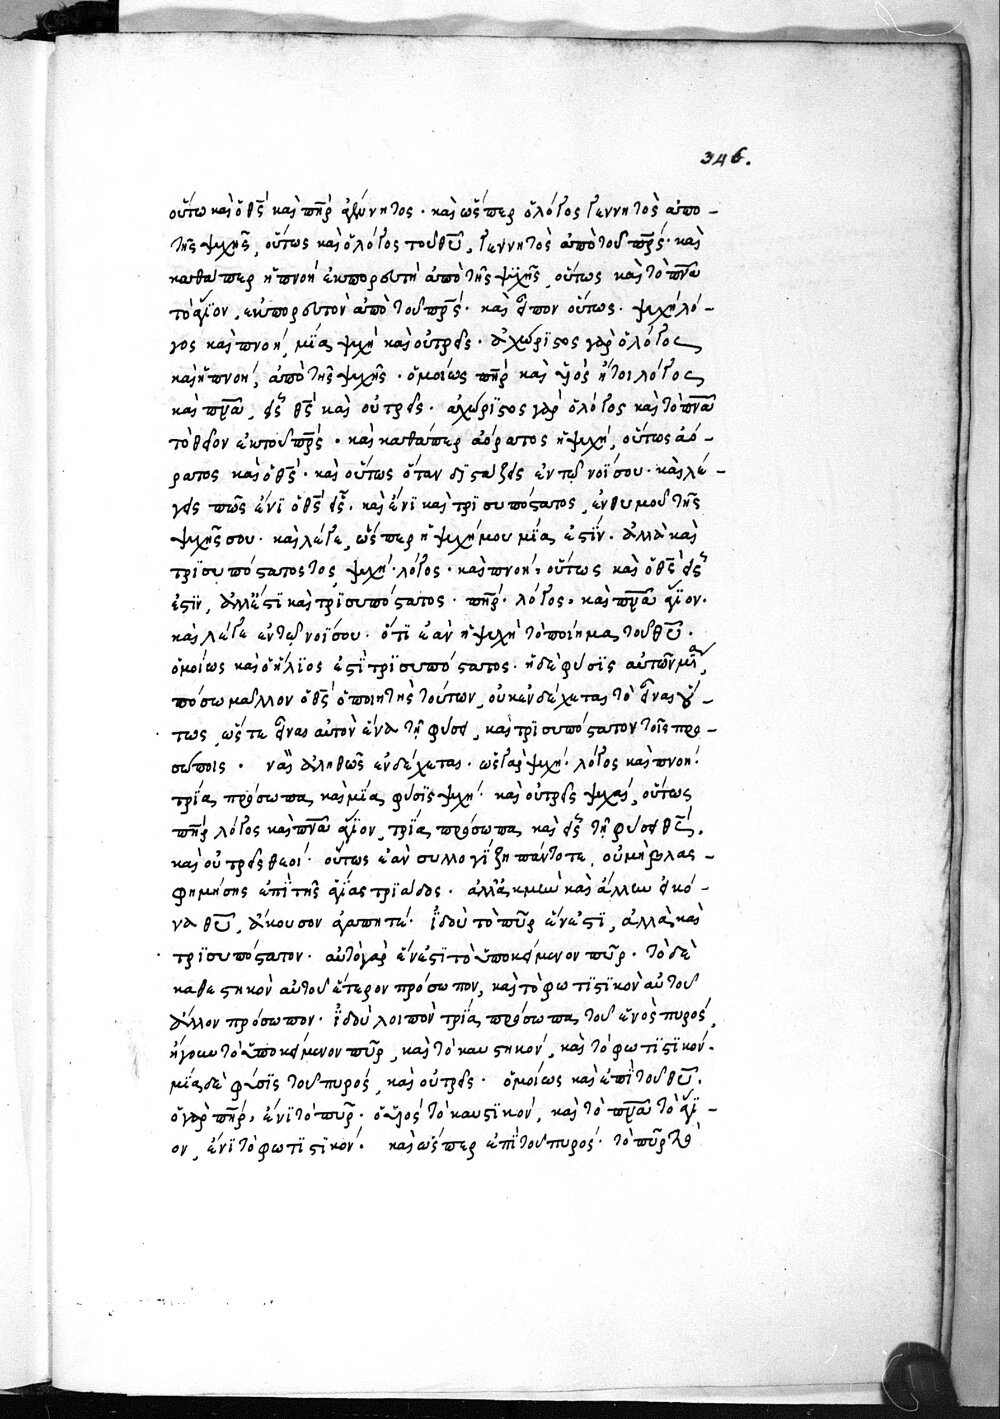 346.
οὕτω καὶ ὁ θς̅ καὶ πη̅ρ ἀγέννητος · καὶ ὥσπερ ὁ λόγος γεννητὸς ἀπο-
τῆς ψυχῆς, οὕτως καὶ ὁ λόγος τοῦ θυ̅, γεννητὸς ἀπὸ τοῦ πρ̅ς · καὶ
καθάπερ ἡ πνοὴ ἐκπορευτὴ ἀπὸ τῆς ψυχῆς, οὕτως καὶ τὸ πν̅α
τὸ ἅγϊον, ἐκπορευτὸν ἀπὸ τοῦ πρ̅ς · καὶ εἶπον οὕτως · ψυχὴ λό-
γος καὶ πνοή, μΐα ψυχὴ καὶ οὐ τρεῖς · ἀχώριστος γὰρ ὁ λόγος
καὶ ἡ πνοή, ἀπὸ τῆς ψυχῆς · ὁμοίως πη̅ρ καὶ υἱὸς ἤτοι λόγος
καὶ πν̅α, εἷς θς̅ καὶ οὐ τρεῖς · ἀχώριστος γὰρ ὁ λόγος καὶ τὸ πν̅α
τὸ θεῖον ἐκ τοῦ πρ̅ς · καὶ καθάπερ ἀόρατος ἡ ψυχή, οὕτως ἀό-
ρατος καὶ ὁ θς̅ · καὶ οὕτως ὅταν διστάζεις ἐν τῶ νοΐ σου · καὶ λέ-
γεις πῶς ἔνι ὁ θς̅ εἷς · καὶ ἔνι καὶ τρισυπόστατος, ἐνθυμοῦ τῆς
ψυχῆς σου · καὶ λέγε, ὥσπερ ἡ ψυχή μου μία ἐστίν · ἀλλὰ καὶ
τρισυπόστατος τος ψυχὴ · λόγος · καὶ πνοή · οὕτως καὶ ὁ θς̅ εἷς
ἐστϊν, ἀλλ' ἔστι καὶ τρισυπόστατος · πη̅ρ · λόγος · καὶ πν̅α ἅγϊον.
καὶ λέγε ἐν τῶ νοΐ σου · ὅτι ἐὰν ἡ ψυχὴ τὸ ποίημα τοῦ θυ̅ ·
ὁμοίως καὶ ὁ ἥλϊος ἐστὶ τρισυπόστατος · ἡ δὲ φύσις αὐτῶν μία,
πόσω μᾶλλον ὁ θς̅ ὁ ποιητὴς τούτων, οὐκ ἐνδέχεται τὸ εἶναι οὕ-
τως, ὥστε εἶναι αὐτὸν ἕνα τῆ φύσει, καὶ τρισυπόστατον τοῖς προ-
σώποις · ναὶ ἀληθῶς ἐνδέχεται · ὡς γὰρ ψυχὴ · λόγος καὶ πνοή ·
τρία πρόσωπα, καὶ μία φύσις ψυχὴ · καὶ οὐ τρεῖς ψυχαί, οὕτως
πη̅ρ λόγος καὶ πν̅α ἅγϊον, τρία πρόσωπα καὶ εἷς τῆ φύσει θς̅.
καὶ οὐ τρεῖς θεοί · οὕτως ἐὰν συλλογίζη πάντοτε, οὐ μὴ βλας-
φημήσης ἐπὶ τῆς ἁγίας τριάδος · ἀλλ' ἄκμὴν καὶ ἄλλην εἰκό-
να θυ̅, ἄκουσον ἀγαπητέ · ἰδοὺ τὸ πῦρ ἕν ἐστι, ἀλλὰ καὶ
τρισυπόστατον · αὐτὸ γὰρ ἕν ἐστι τὸ ὑποκείμενον πῦρ · τὸ δὲ
καθεστηκὸν αὐτοῦ ἕτερον πρόσωπον, καὶ τὸ φωτιστικὸν αὐτοῦ
ἄλλον πρόσωπον · ἰδοὺ λοιπὸν τρία πρόσωπα τοῦ ἑνὸς πυρός,
ἤγουν τὸ ὑποκείμενον πῦρ, καὶ τὸ καυστηκόν, καὶ τὸ φωτιστικόν.
μία δὲ φύσις τοῦ πυρός, καὶ οὐ τρεῖς · ὁμοίως καὶ ἐπὶ τοῦ θυ̅.
ὁ γὰρ πη̅ρ, ἔνι τὸ πῦρ · ὁ υἱὸς τὸ καυστικόν, καὶ τὸ πν̅α τὸ ἅγϊ-
ον, ἔνι τὸ φωτιστικόν · καὶ ὥσπερ ἐπὶ τοῦ πυρός · τὸ πῦρ